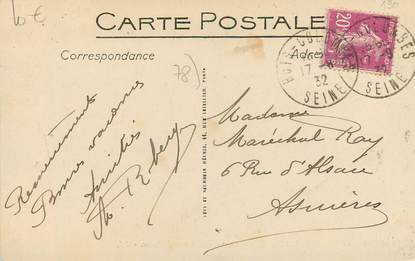 10€
130
CARTE POSTALE
Correspondance
Adres
78)
20
BOIS-COLOMBES
17
32
SEINE
Remerciement
Bonnes vacances
Amitiés
Madame
Maréchal Ray
6 Rue d'Alsace
Asnières